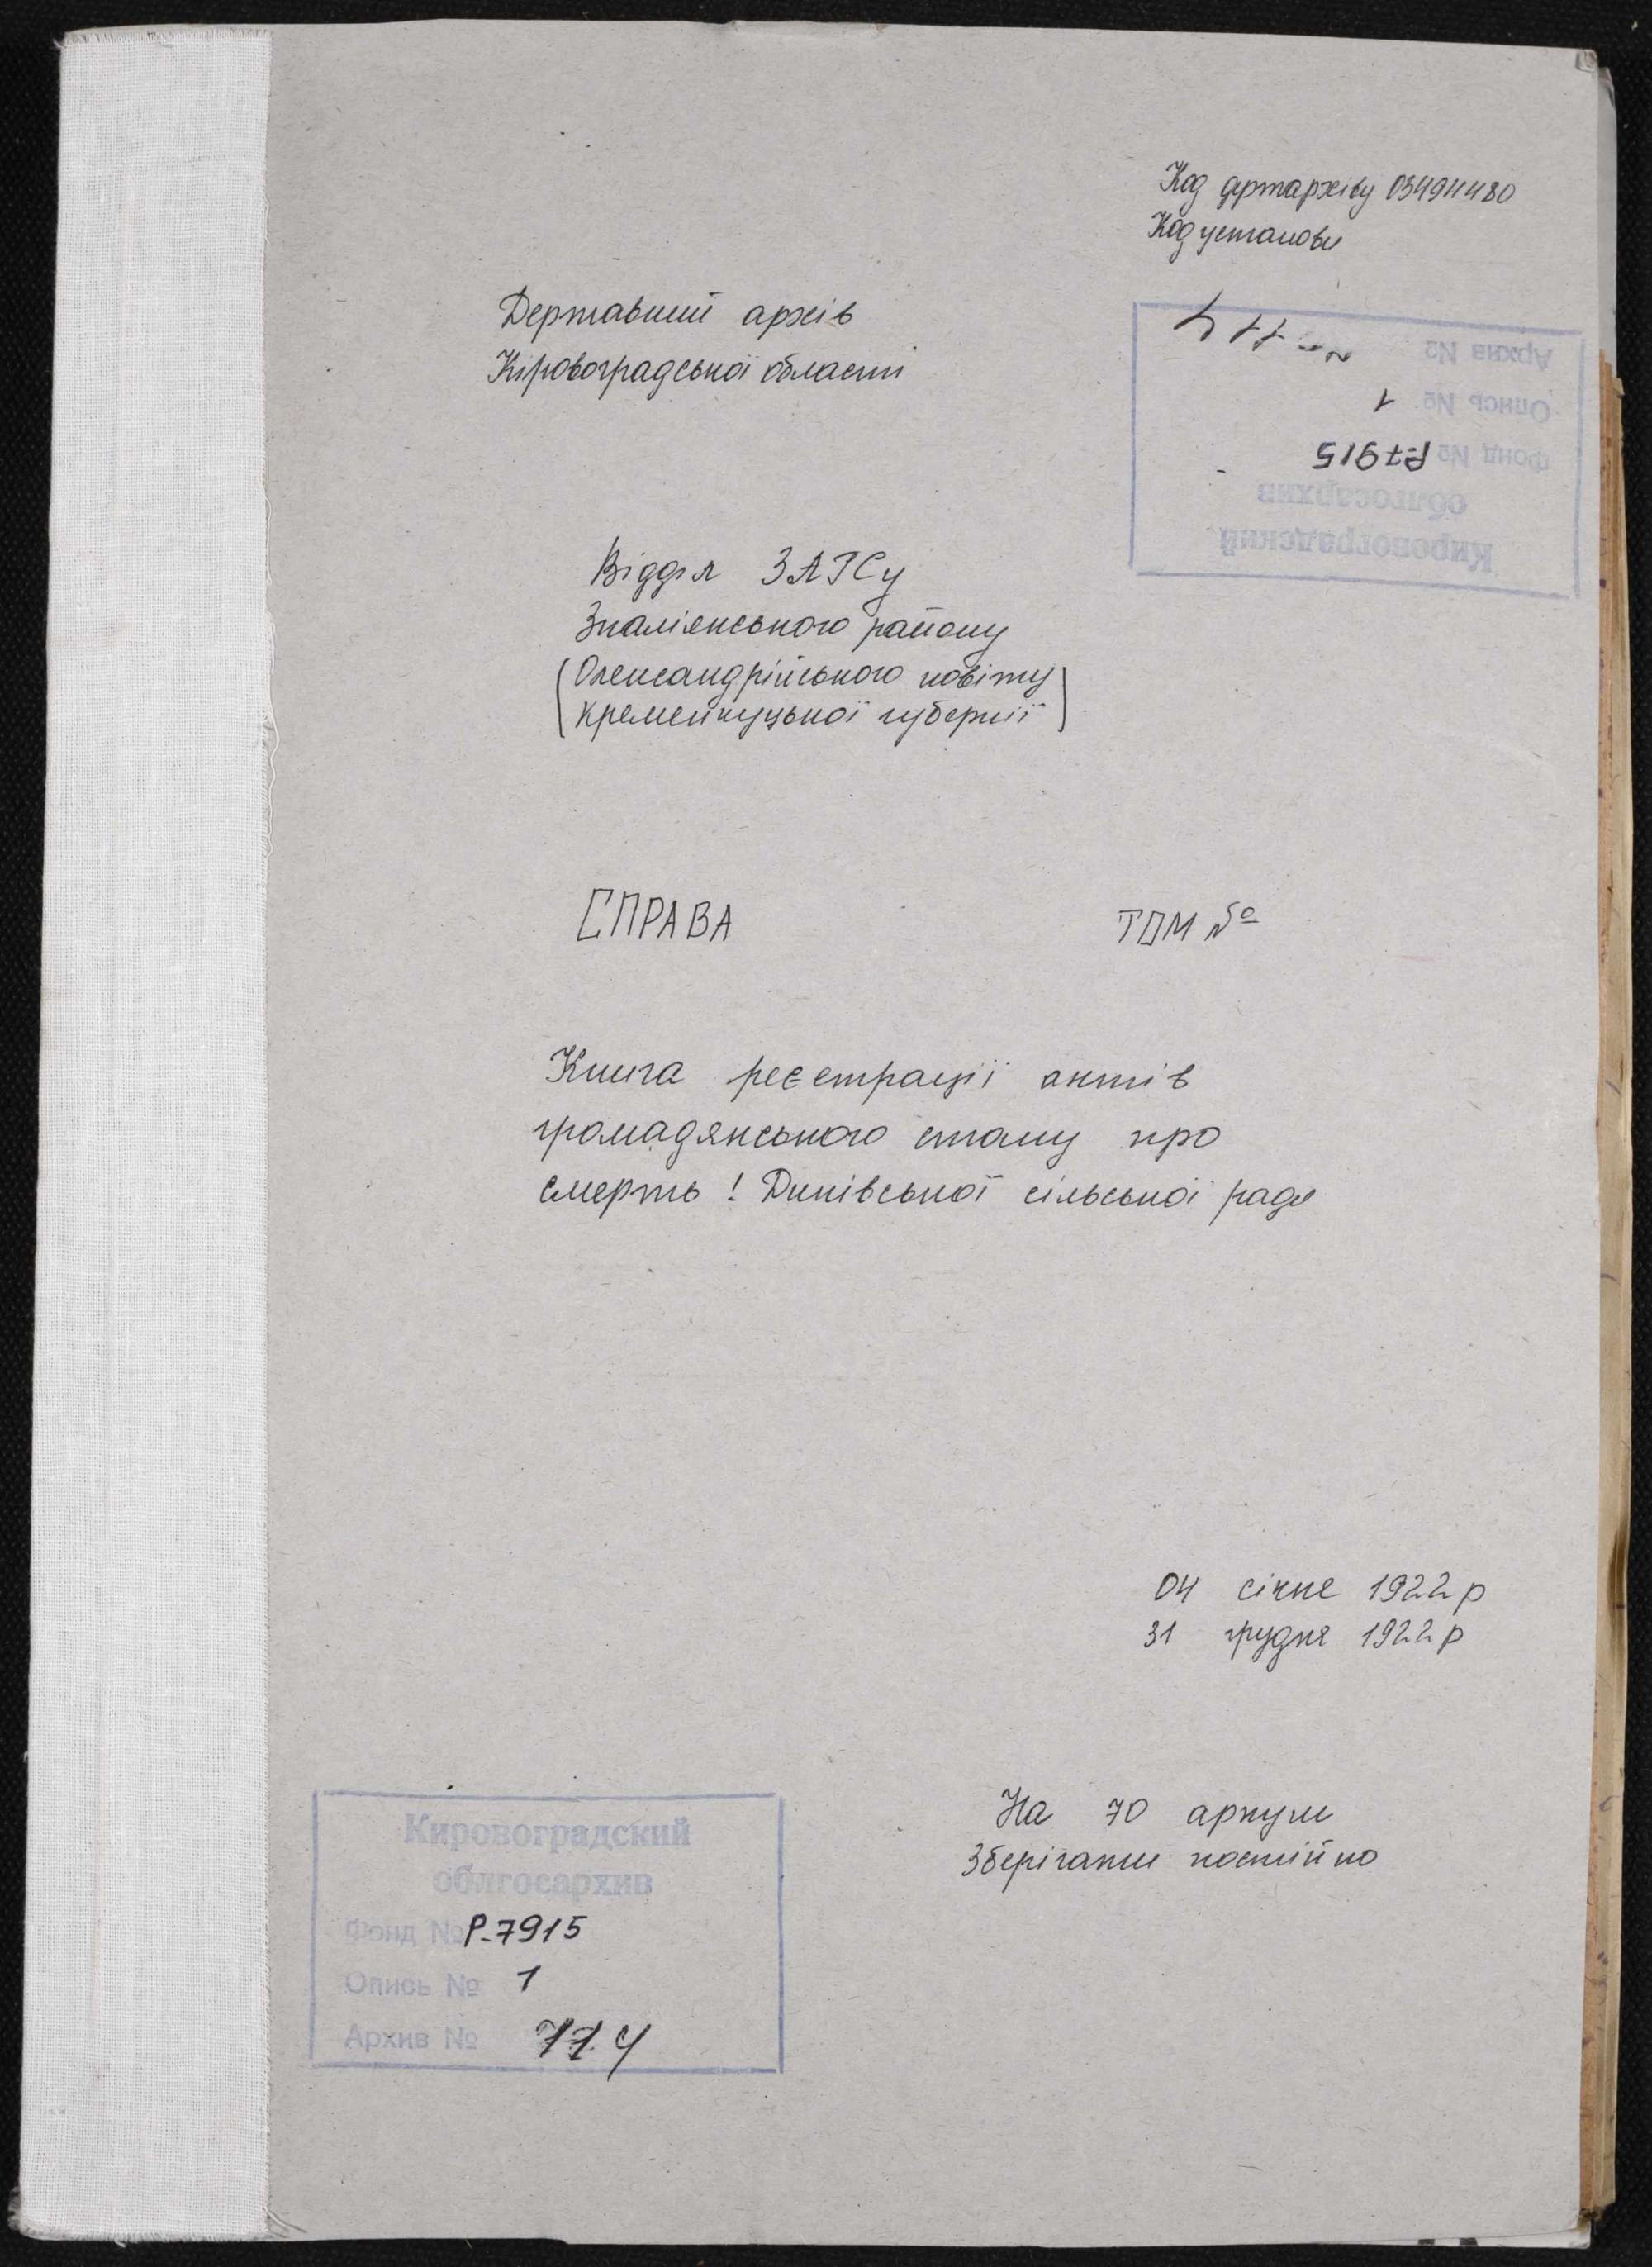 Код держархіву 03494480
Код установи
Державний архів
Кіровоградської області
Кировоградский
облгосархив
Фонд № Р-7915
Опись № 1
Архив №
Відділ ЗАГСу
Знам'янського району
(Олександрійського повіту
Кременчуцької губернії)
СПРАВА ТОМ №
Книга реєстрації актів
громадянського стану про
смерть! Диківської сільської ради
04 січня 1922 р
31 грудня 1922 р
На 70 аркуш
Зберігати постійно
Кировоградский
облгосархив
Фонд № Р-7915
Опись № 1
Архив № 774